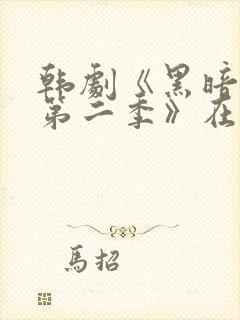 韩劇《黑暗
第二季》在
馬招